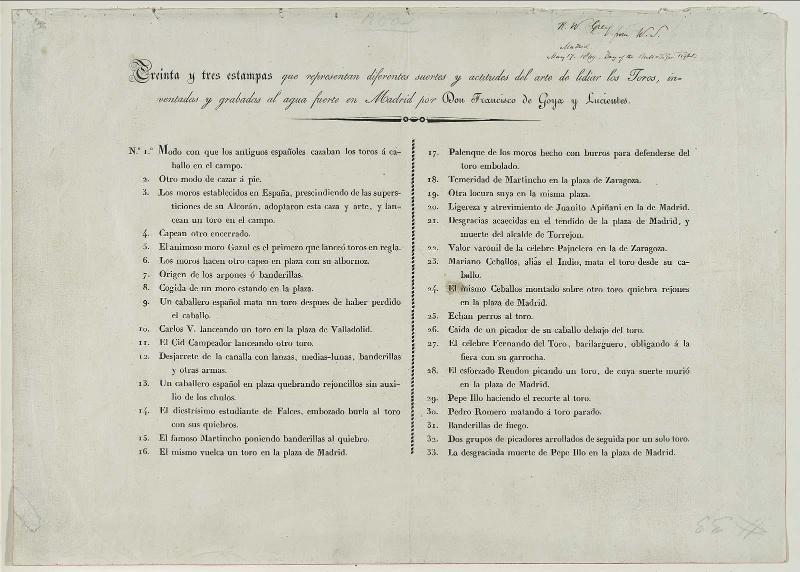 R. W. Grey
from W. S.
Madrid
Treinta y tres estampas que representan diferentes suertes y actitudes del arte de lidiar los Toros, in-
ventadas y grabadas al agua fuerte en Madrid por Don Francisco de Goya y Lucientes.
N.º 1.º Modo con que los antiguos españoles cazaban los toros á ca-
ballo en el campo.
2. Otro modo de cazar á pie.
3. Los moros establecidos en España, prescindiendo de las supers-
ticiones de su Alcorán, adoptaron esta caza y arte, y lan-
cean un toro en el campo.
4. Capean otro encerrado.
5. El animoso moro Gazul es el primero que lanceó toros en regla.
6. Los moros hacen otro capeo en plaza con su albornoz.
7. Origen de los arpones ó banderillas.
8. Cogida de un moro estando en la plaza.
9. Un caballero español mata un toro despues de haber perdido
el caballo.
10. Carlos V. lanceando un toro en la plaza de Valladolid.
11. El Cid Campeador lanceando otro toro.
12. Desjarrete de la canalla con lanzas, medias-lunas, banderillas
y otras armas.
13. Un caballero español en plaza quebrando rejoncillos sin auxi-
lio de los chulos.
14. El diestrísimo estudiante de Falces, embozado burla al toro
con sus quiebros.
15. El famoso Martincho poniendo banderillas al quiebro.
16. El mismo vuelca un toro en la plaza de Madrid.
17. Palenque de los moros hecho con burros para defenderse del
toro embolado.
18. Temeridad de Martincho en la plaza de Zaragoza.
19. Otra locura suya en la misma plaza.
20. Ligereza y atrevimiento de Juanito Apiñani en la de Madrid.
21. Desgracias acaecidas en el tendido de la plaza de Madrid, y
muerte del alcalde de Torrejon.
22. Valor varonil de la célebre Pajuelera en la de Zaragoza.
23. Mariano Ceballos, aliás el Indio, mata el toro desde su ca-
ballo.
24. El mismo Ceballos montado sobre otro toro quiebra rejones
en la plaza de Madrid.
25. Echan perros al toro.
26. Caida de un picador de su caballo debajo del toro.
27. El célebre Fernando del Toro, barilarguero, obligando á la
fiera con su garrocha.
28. El esforzado Rendon picando un toro, de cuya suerte murió
en la plaza de Madrid.
29. Pepe Illo haciendo el recorte al toro.
30. Pedro Romero matando á toro parado.
31. Banderillas de fuego.
32. Dos grupos de picadores arrollados de seguida por un solo toro.
33. La desgraciada muerte de Pepe Illo en la plaza de Madrid.